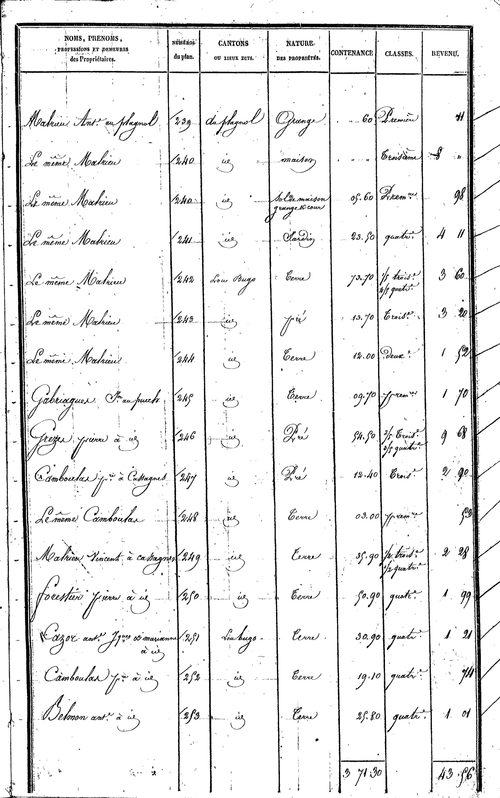 NOMS, PRÉNOMS, PROFESSIONS ET DEMEURES des Propriétaires. NUMÉROS du plan. CANTONS OU LIEUX DITS. NATURE DES PROPRIÉTÉS. CONTENANCE CLASSES. REVENU.
Mahrieu Ant.e au plagnol 1239 du plagnol Grange 60 Première 41
Le même Mahrieu 1240 id maison Troisième 8 "
Le même Mahrieu 1240 id Sol de maison grange & cour 05.60 Prem.re 98
Le même Mahrieu 1241 id Jardin 23.50 quatr.e 4 11
Le même Mahrieu 1242 Lou Bugo Terre 73.70 trois.e quatr.e 3 60
Le même Mahrieu 1243 id pré 13.70 Trois.e 3 20
Le même Mahrieu 1244 id Terre 12.00 Deux.e 1 52
Gabriagues au puech 1245 id Terre 09.70 prem.re 1 70
Greze pierre à id 1246 id Pré 54.50 Trois.e quatr.e 9 68
Camboulas p.re à Cassagnes 1247 id Pré 12.40 Trois.e 2 90
Le même Camboulas 1248 id Terre 03.00 prem.re 53
Mahrieu Vincent à cassagnes 1249 id Terre 35.90 trois.e quatr.e 2 28
Forestier pierre à id 1250 id Terre 50.90 quatr.e 1 99
Cazor ant.e marianne à id 1251 Lou bugo Terre 30.90 quatr.e 1 21
Camboulas p.re à id 1252 id Terre 19.10 quatr.e 74
Belmon ant.e à id 1253 id Terre 25.80 quatr.e 1 01
3 71.30 43 56